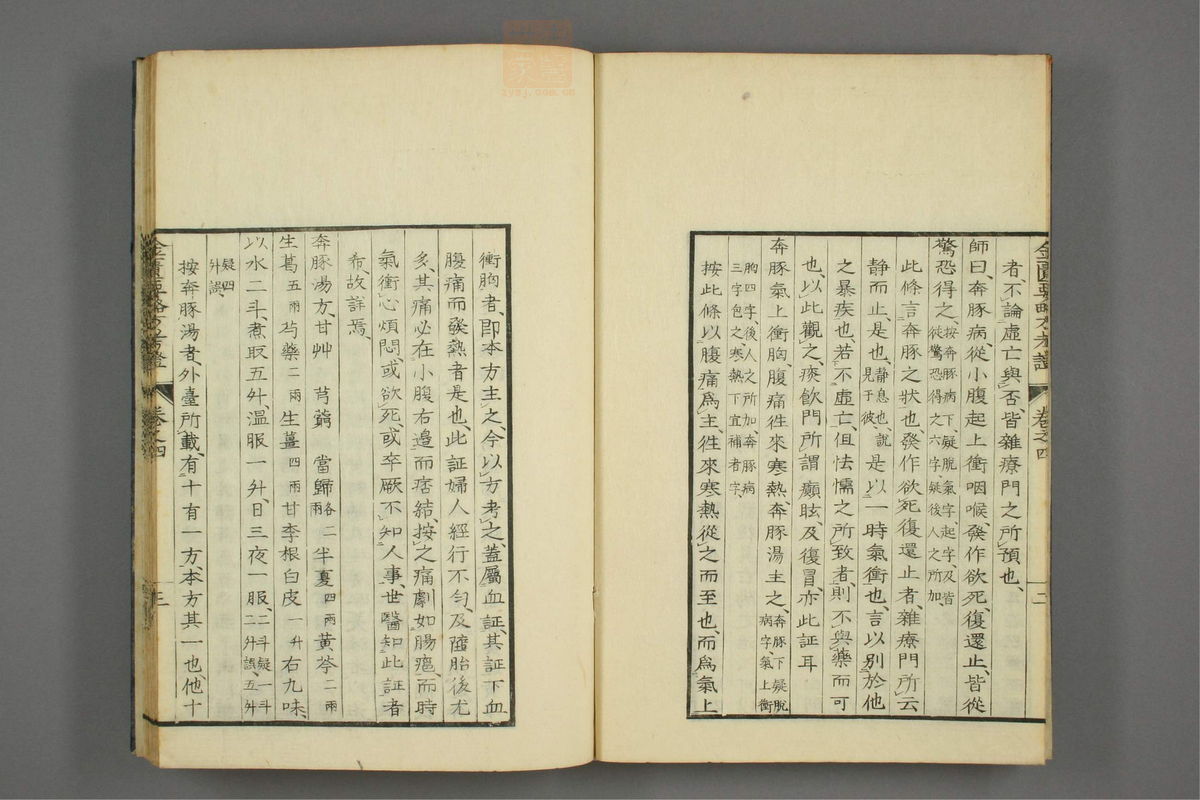 金匱要略方考證　卷之四　二
者、不論虛亡與否、皆雜療門之所預也、
師曰、奔豚病、從小腹起上衝咽喉、發作欲死、復還止、皆從
驚恐得之、按奔豚病下、疑脫氣字、起字、及皆從驚恐得之六字、疑後人之所加
此條言奔豚之狀也、發作欲死復還止者、雜療門所云
靜而止、是也、靜息也、說見于彼、是以一時氣衝也、言以別於他
之暴疾也、若不虛亡、但怯懦之所致者、則不與藥而可
也、以此觀之、痰飲門所謂癲眩、及復冒、亦此証耳
奔豚氣上衝胸、腹痛徃來寒熱、奔豚湯主之、奔豚下疑脫病字、氣上衝
胸四字、後人之所加、奔豚病三字包之、寒熱下宜補者字、
按此條以腹痛爲主、徃來寒熱從之而至也、而爲氣上
衝胸者、卽本方主之、今以方考之、蓋屬血証、其証下血
腹痛而發熱者是也、此証婦人經行不勻、及墮胎後尤
多、其痛必在小腹右邊、而痞結、按之痛劇如腸癰、而時
氣衝心煩悶、或欲死、或卒厥不知人事、世醫知此証者
希、故詳焉、
奔豚湯方、甘艸　芎藭　當歸各二兩　半夏四兩　黃芩二兩
生葛五兩　芍藥二兩　生薑四兩　甘李根白皮一升　右九味、
以水二斗、煮取五升、溫服一升、日三夜一服、二斗疑一斗二升誤、五升
疑四升誤、
按奔豚湯者、外臺所載、有十有一方、本方其一也、他十
金匱要略方考證　卷之四　三